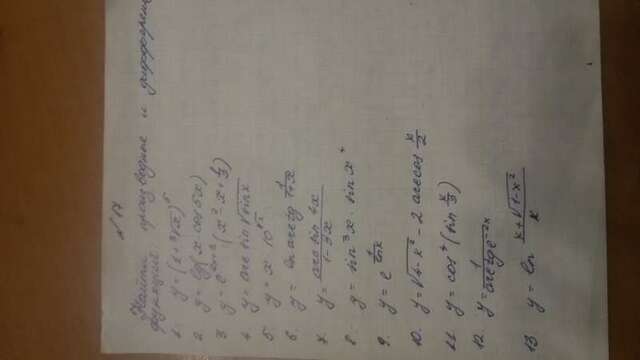 № 17
Найти производные и дифференц
функций
1. y = (1+³√x)⁵
2. y = lg(x cos 5x)
3 y = e^(sin 3) (x² x + 1/3)
4 y = arc sin √sin x
5. y = x 10^√x
6. y = ln arctg 1/(1+x)
7. y = arc sin 4x / (1-3x)
8. y = sin³x · sin x⁴
9. y = e^(1/cos x)
10. y = √(4-x²) - 2 arc cos x/2
11 y = cos⁴ (sin x/3)
12. y = 1/(arctg e^(-2x))
13 y = ln (x+√(1-x²))/x